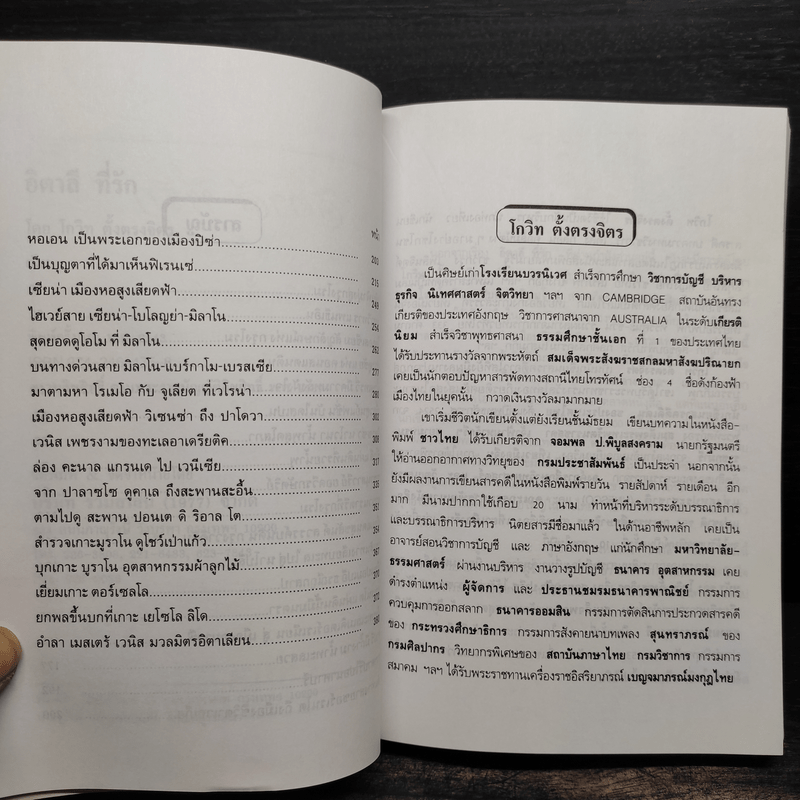 หอเอน เป็นพระเอกของเมืองปิซ่า
เป็นบุญตาที่ได้มาเห็นฟิเรนเซ่
เซียน่า เมืองหอสูงเสียดฟ้า
ไฮเวย์สาย เซียน่า-โบโลญย่า-มิลาโน
สุดยอดดูโอโม ที่ มิลาโน
บนทางด่วนสาย มิลาโน-แบร์กาโม-เบรสเซีย
มาตามหา โรเมโอ กับ จูเลียต ที่เวโรน่า
เมืองหอสูงเสียดฟ้า วิเซนซ่า ถึง ปาโดวา
เวนิส เพชรงามของทะเลอาเดรียติค
ล่อง คะนาล แกรนเด ไป เวนีเซีย
จาก ปาลาซโซ ดูคาเล ถึงสะพานสะอื้น
ตามไปดู สะพาน ปอนเต ดิ ริอาล โต
สำรวจเกาะมูราโน ดูโชว์เป่าแก้ว
บุกเกาะ บูราโน อุตสาหกรรมผ้าลูกไม้
เยี่ยมเกาะ ตอร์เซลโล
ยกพลขึ้นบกที่เกาะ เยโซโล ลิโด
อำลา เมสเตร้ เวนิส มวลมิตรอิตาเลียน
โกวิท ตั้งตรงจิตร
เป็นศิษย์เก่าโรงเรียนบวรนิเวศ สำเร็จการศึกษา วิชาการบัญชี บริหาร
ธุรกิจ นิเทศศาสตร์ จิตวิทยา ฯลฯ จาก CAMBRIDGE สถาบันอันทรง
เกียรติของประเทศอังกฤษ วิชาการศาสนาจาก AUSTRALIA ในระดับเกียรติ
นิยม สำเร็จวิชาพุทธศาสนา ธรรมศึกษาชั้นเอก ที่ 1 ของประเทศไทย
ได้รับประทานรางวัลจากพระหัตถ์ สมเด็จพระสังฆราชสกลมหาสังฆปริณายก
เคยเป็นนักตอบปัญหาสารพัดทางสถานีไทยโทรทัศน์ ช่อง 4 ชื่อดังก้องฟ้า
เมืองไทยในยุคนั้น กวาดเงินรางวัลมามากมาย
เขาเริ่มชีวิตนักเขียนตั้งแต่ยังเรียนชั้นมัธยม เขียนบทความในหนังสือ-
พิมพ์ ชาวไทย ได้รับเกียรติจาก จอมพล ป.พิบูลสงคราม นายกรัฐมนตรี
ให้อ่านออกอากาศทางวิทยุของ กรมประชาสัมพันธ์ เป็นประจำ นอกจากนั้น
ยังมีผลงานการเขียนสารคดีในหนังสือพิมพ์รายวัน รายสัปดาห์ รายเดือน อีก
มาก มีนามปากกาใช้เกือบ 20 นาม ทำหน้าที่บริหารระดับบรรณาธิการ
และบรรณาธิการบริหาร นิตยสารมีชื่อมาแล้ว ในด้านอาชีพหลัก เคยเป็น
อาจารย์สอนวิชาการบัญชี และ ภาษาอังกฤษ แก่นักศึกษา มหาวิทยาลัย-
ธรรมศาสตร์ ผ่านงานบริหาร งานวางรูปบัญชี ธนาคาร อุตสาหกรรม เคย
ดำรงตำแหน่ง ผู้จัดการ และ ประธานชมรมธนาคารพาณิชย์ กรรมการ
ควบคุมการออกสลาก ธนาคารออมสิน กรรมการตัดสินการประกวดสารคดี
ของ กระทรวงศึกษาธิการ กรรมการสังคายนาบทเพลง สุนทราภรณ์ ของ
กรมศิลปากร วิทยากรพิเศษของ สถาบันภาษาไทย กรมวิชาการ กรรมการ
สมาคม ฯลฯ ได้รับพระราชทานเครื่องราชอิสริยาภรณ์ เบญจมาภรณ์มงกุฎไทย